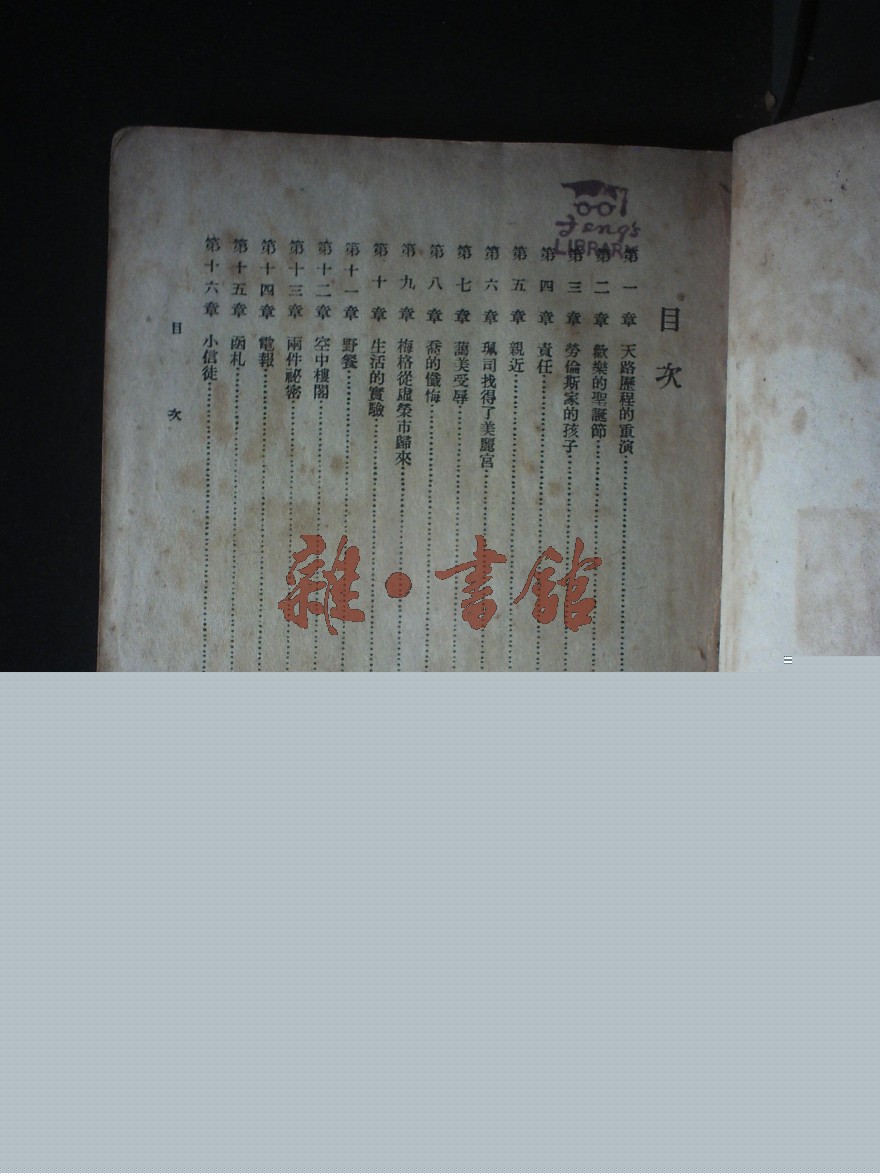 目次
第一章 天路歷程的重演
第二章 歡樂的聖誕節
第三章 勞倫斯家的孩子
第四章 責任
第五章 親近
第六章 珮司找得了美麗宮
第七章 藹美受辱
第八章 喬的懺悔
第九章 梅格從虛榮市歸來
第十章 生活的實驗
第十一章 野餐
第十二章 空中樓閣
第十三章 兩件祕密
第十四章 電報
第十五章 函札
第十六章 小信徒
目次
Feng's
LIBRARY
雜·書館